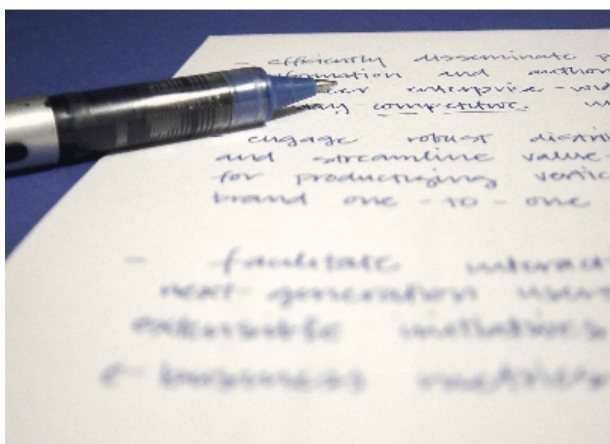 - efficiently disseminate p
information and author
enterprise-wid
competitive.
engage robust distri
and streamline value
for productizing vertic
brand one-to-one
- facilitate interact
next-generation users
extensible initiatives
e-business metrics